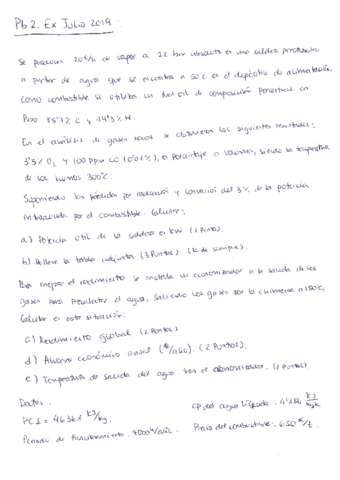 Pb 2. Ex Julio 2019:
Se producen 20 t/h de vapor a 12 bar absolutos en una caldera pirotubular
a partir de agua que se encuentra a 50°C en el depósito de alimentación
como combustible se utiliza un fuel oil de composición porcentual en
Peso 85'7% C y 14'3% H.
En el análisis de gases secos se obtuvieron los siguientes resultados:
3'5% O2 y 100 ppm CO (0'01%), en porcentaje o volumen, siendo la temperatura
de los humos 300°C
Suponiendo las pérdidas por radiación y convección del 3% de la potencia
introducida por el combustible. Calcular:
a) Potencia útil de la caldera en kW (1 Punto).
b) Rellene la tabla adjunta (3 Puntos) (la de siempre).
Para mejorar el rendimiento se instala un economizador a la salida de los
gases para precalentar el agua, saliendo los gases por la chimenea a 150°C,
Calcular en esta situación:
c) Rendimiento global (2 Puntos)
d) Ahorro económico anual (€/año). (2 Puntos).
e) Temperatura de salida del agua tras el economizador. (2 Puntos).
Datos:
PCI = 46361 kJ/kg.
CP del agua líquida: 4'186 kJ/kgK
Periodo de funcionamiento: 7000 h/año.
Precio del combustible: 650 €/t.